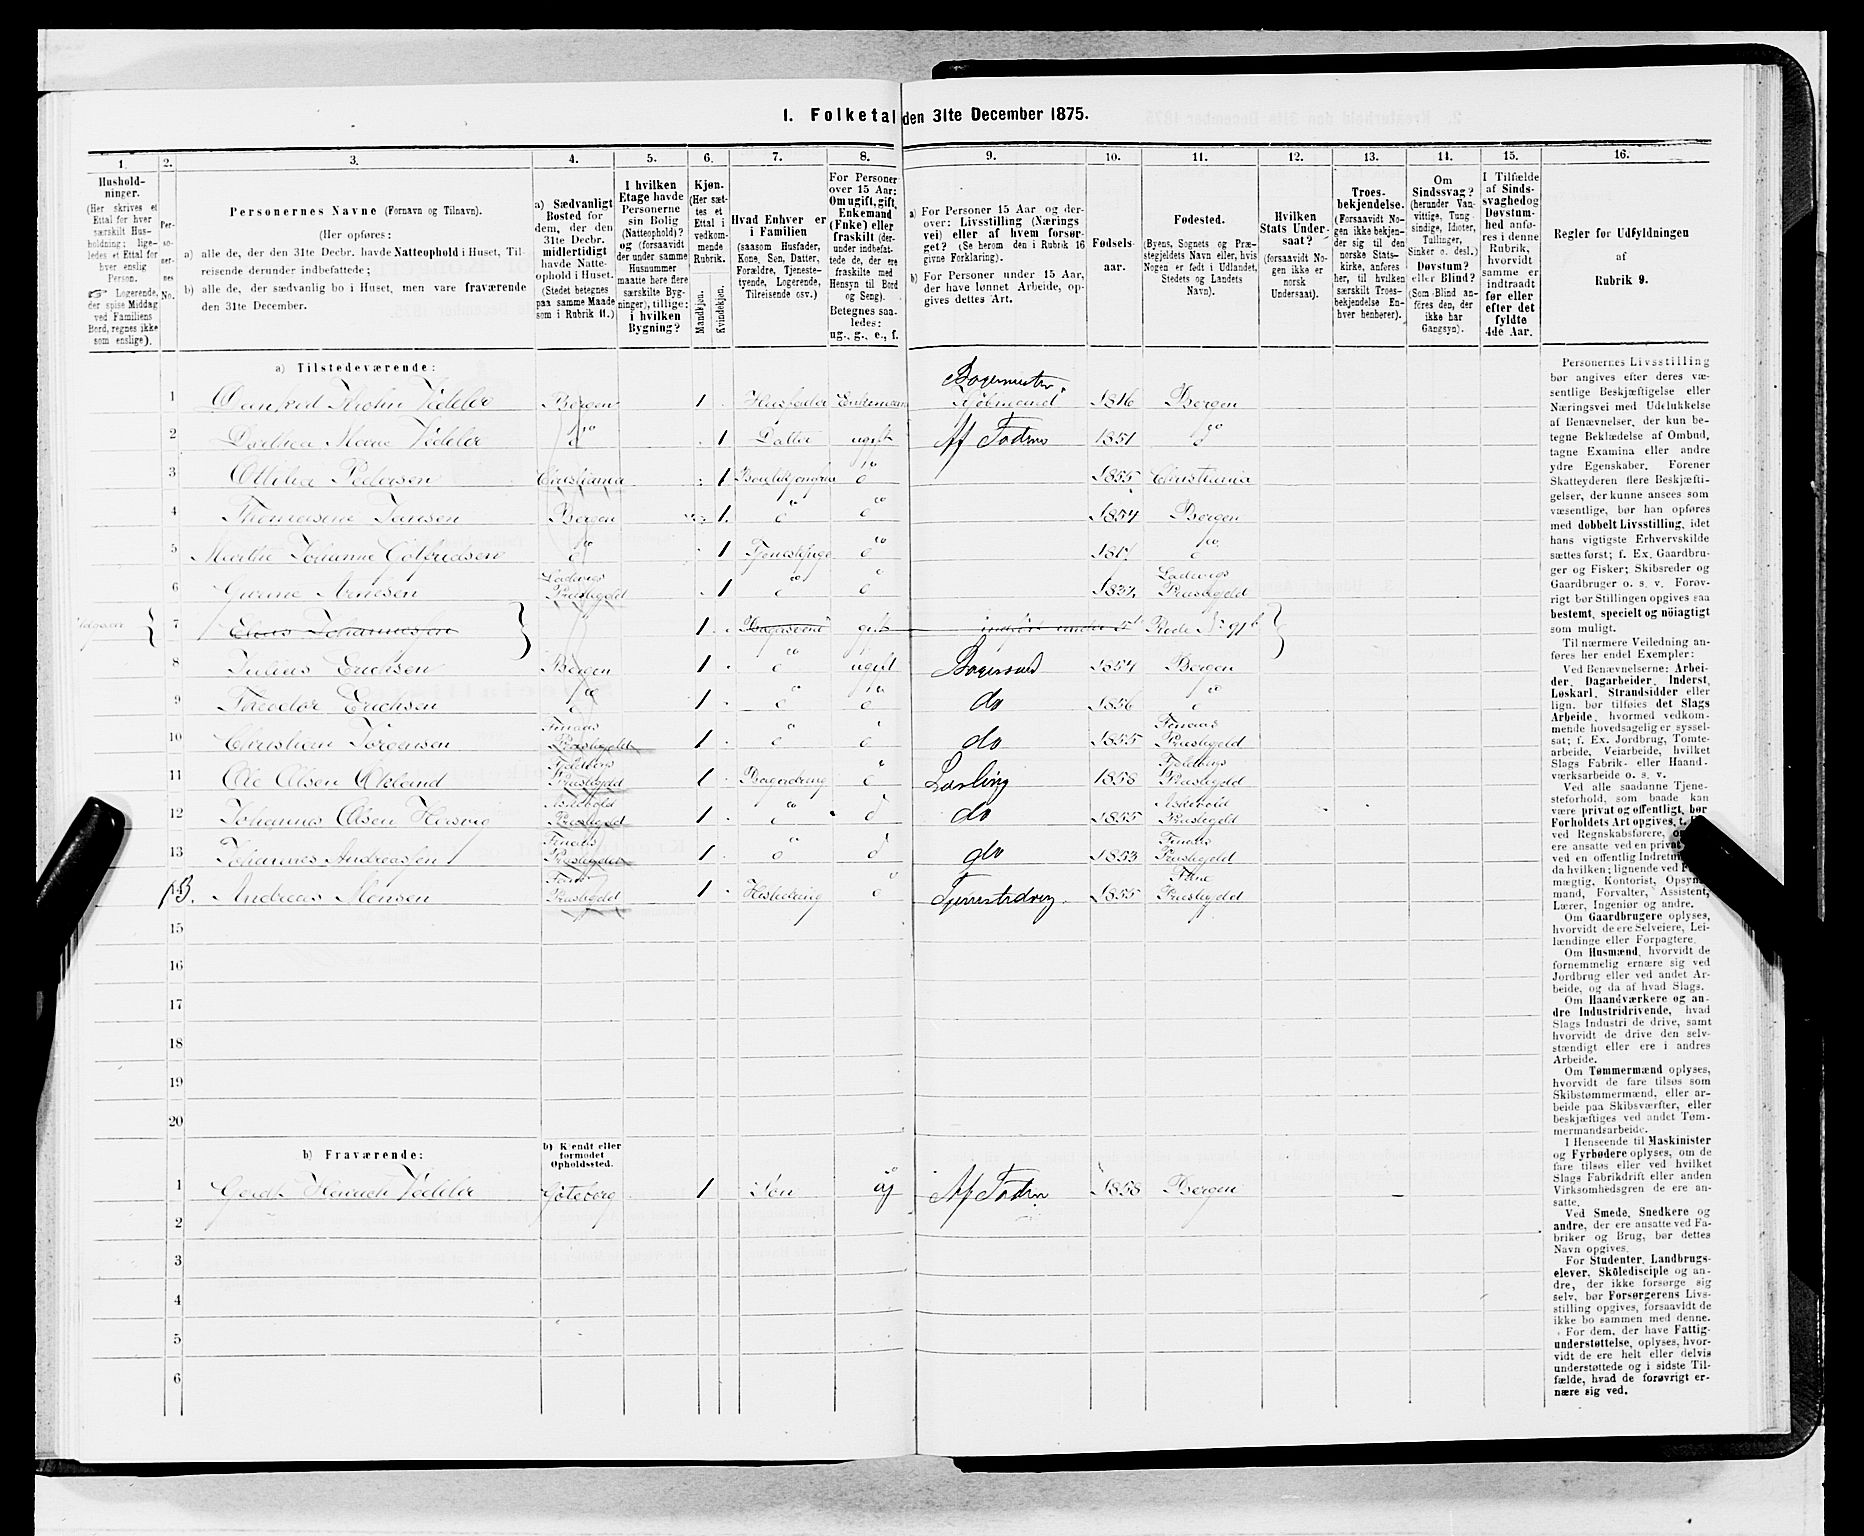 1. Folketal den 31te December 1875.
1. 2. 3. 4. 5. 6. 7. 8. 9. 10. 11. 12. 13. 14. 15. 16.
Hushold-
ninger.
(Her skrives et
Ettal for hver
særskilt Hus-
holdning; lige-
ledes et Ettal for
hver enslig
Person.
☞ Logerende,
der spise Middag
ved Familiens
Bord, regnes ikke
som enslige).
Per-
so-
ner-
nes
No.
Personernes Navne (Fornavn og Tilnavn).
(Her opføres:
a) alle de, der den 31te Decbr. havde Natteophold i Huset, Til-
reisende derunder indbefattede;
b) alle de, der sædvanlig bo i Huset, men vare fraværende
den 31te December.
a) Sædvanligt
Bosted for
dem, der den
31te Decbr.
midlertidigt
havde Natte-
ophold i Huset.
(Stedet betegnes
paa samme Maade
som i Rubrik 11.)
I hvilken
Etage havde
Personerne
sin Bolig
(Natteophold)?
og (forsaavidt
der under samme
Husnummer
maatte høre flere
særskilte Byg-
ninger), tillige:
i hvilken
Bygning?
Kjøn.
(Her sæt-
tes et
Ettal i
vedkom-
mende
Rubrik.
Mandkjøn.
Kvindekjøn.
Hvad Enhver er
i Familien
(saasom Husfader,
Kone, Søn, Datter,
Forældre, Tjeneste-
tyende, Logerende,
Tilreisende osv.)
For Personer
over 15 Aar:
Om ugift, gift,
Enkemand
(Enke) eller
fraskilt (der-
under indbefat-
tede de, der ere
fraskilte med
Hensyn til Bord
og Seng).
Betegnes saa-
ledes:
ug., g., e., f.
a) For Personer 15 Aar og der-
over: Livsstilling (Nærings-
vei) eller af hvem forsør-
get? (Se herom den i Rubrik 16
givne Forklaring).
b) For Personer under 15 Aar,
der have lønnet Arbeide, op-
gives dettes Art.
Fødsels-
aar.
Fødested.
(Byens, Sognets og Præ-
stegjeldets Navn eller, hvis
Nogen er født i Udlandet,
Stedets og Landets
Navn).
Hvilken
Stats Under-
saat?
(forsaavidt No-
gen ikke er
norsk
Undersaat).
Troes-
bekjendelse.
(Forsaavidt No-
gen ikke bekjen-
der sig til den
norske Stats-
kirke, anføres
her, til hvilken
særskilt Troes-
bekjendelse En-
hver henhører).
Om
Sindssvag?
(herunder Van-
vittige, Tung-
sindige, Idioter,
Tullinger,
Sinker o. desl.)
Døvstum?
eller Blind?
(Som Blind an-
føres den, der
ikke har
Gangsyn).
I Tilfælde
af Sinds-
svaghed og
Døvstum-
hed anfø-
res i denne
Rubrik,
hvorvidt
samme er
indtraadt
før eller
efter det
fyldte
4de Aar.
Regler for Udfyldningen
af
Rubrik 9.
a) Tilstedeværende:
1 Vedeler Bergen 1 Husfader Enkemand Bagermester Kjøbmand 1816 Bergen
2 Dorthea Marie Vedeler do 1 Datter ugift Af Faderen 1851 do
3 Ottilia Pedersen Christiania 1 do 1855 Christiania
4 Thomasine Jansen Bergen 1 do do 1854 Bergen
5 Marthe Johanne do 1 Tjenestepige do 1817 do
6 Gurine Arnesen Ladevigs Præstegjeld 1 do do 1837 Ladevigs Præstegjeld
7 Johannesen 1 Bagersvend gift indført under Rode No 91b
8 Julius Erichsen Bergen 1 do ugift Bagersvend 1854 Bergen
9 Theodor Erichsen do 1 do do do 1856 do
10 Christian Jørgensen Præstegjeld 1 do do do 1855 Præstegjeld
11 Ole Olsen Økland Præstegjeld 1 Bagerdreng do Lærling 1858 Præstegjeld
12 Johannes Olsen Askevold Præstegjeld 1 do do do 1855 Askevold Præstegjeld
13 Johannes Andreassen Præstegjeld 1 do do do 1853 Præstegjeld
Andreas Monsen Fane Præstegjeld 1 do 1855 Fane Præstegjeld
15
16
17
18
19
20
b) Fraværende:
b) Kjendt eller
formodet
Opholdssted.
1 Gerdt Henrich Vedeler Göteborg 1 Søn ug Af Faderen 1858 Bergen
2
3
4
5
6
Personernes Livsstilling
bør angives efter deres væ-
sentlige Beskjæftigelse eller
Næringsvei med Udelukkelse
af Benævnelser, der kun be-
tegne Beklædelse af Ombud,
tagne Examina eller andre
ydre Egenskaber. Forener
Skatteyderen flere Beskjæfti-
gelser, der kunne ansees som
væsentlige, bør han opføres
med dobbelt Livsstilling, idet
hans vigtigste Erhvervskilde
sættes først; f. Ex. Gaardbru-
ger og Fisker; Skibsreder og
Gaardbruger o. s. v. Forøv-
rigt bør Stillingen opgives saa
bestemt, specielt og nöiagtigt
som muligt.
Til nærmere Veiledning an-
føres her endel Exempler:
Ved Benævnelserne: Arbei-
der, Dagarbeider, Inderst,
Løskarl, Strandsidder eller
lign. bør tilføies det Slags
Arbeide, hvormed vedkom-
mende hovedsagelig er syssel-
sat; f. Ex. Jordbrug, Tomte-
arbeide, Veiarbeide, hvilket
Slags Fabrik- eller Haand-
værksarbeide o. s. v.
Ved alle saadanne Tjene-
steforhold, som baade kan
være privat og offentligt, bør
Forholdets Art opgives, t.
ved Regnskabsførere,
ere ansatte ved en privat
ved en offentlig Indretning
da hvilken; lignende ved
mægtig, Kontorist, Opsyns-
mand, Forvalter, Assistent,
Lærer, Ingeniør og andre.
Om Gaardbrugere oplyses,
hvorvidt de ere Selveiere, Lei-
lændinge eller Forpagtere.
Om Husmænd, hvorvidt de
fornemmelig ernære sig ved
Jordbrug eller ved andet Ar-
beide, og da af hvad Slags.
Om Haandværkere og an-
dre Industridrivende, hvad
Slags Industri de drive, samt
hvorvidt de drive den selv-
stændigt eller ere i andres
Arbeide.
Om Tømmermænd oplyses,
hvorvidt de fare tilsøs som
Skibstømmermænd, eller ar-
beide paa Skibsværfter, eller
beskjæftiges ved andet Tøm-
mermandsarbeide.
I Henseende til Maskinister
og Fyrbødere oplyses, om de
fare tilsøs eller ved hvilket
Slags Fabrikdrift eller anden
Virksomhedsgren de ere an-
satte.
Ved Smede, Snedkere og
andre, der ere ansatte ved Fa-
briker og Brug, bør dettes
Navn opgives.
For Studenter, Landbrugs-
elever, Skoledisciple og an-
dre, der ikke forsørge sig
selv, bør Forsørgerens Livs-
stilling opgives, forsaavidt de
ikke bo sammen med denne.
For dem, der have Fattig-
understøttelse, oplyses, hvor-
vidt de ere helt eller delvis
understøttede og i sidste Til-
fælde, hvad de forøvrigt er-
nære sig ved.